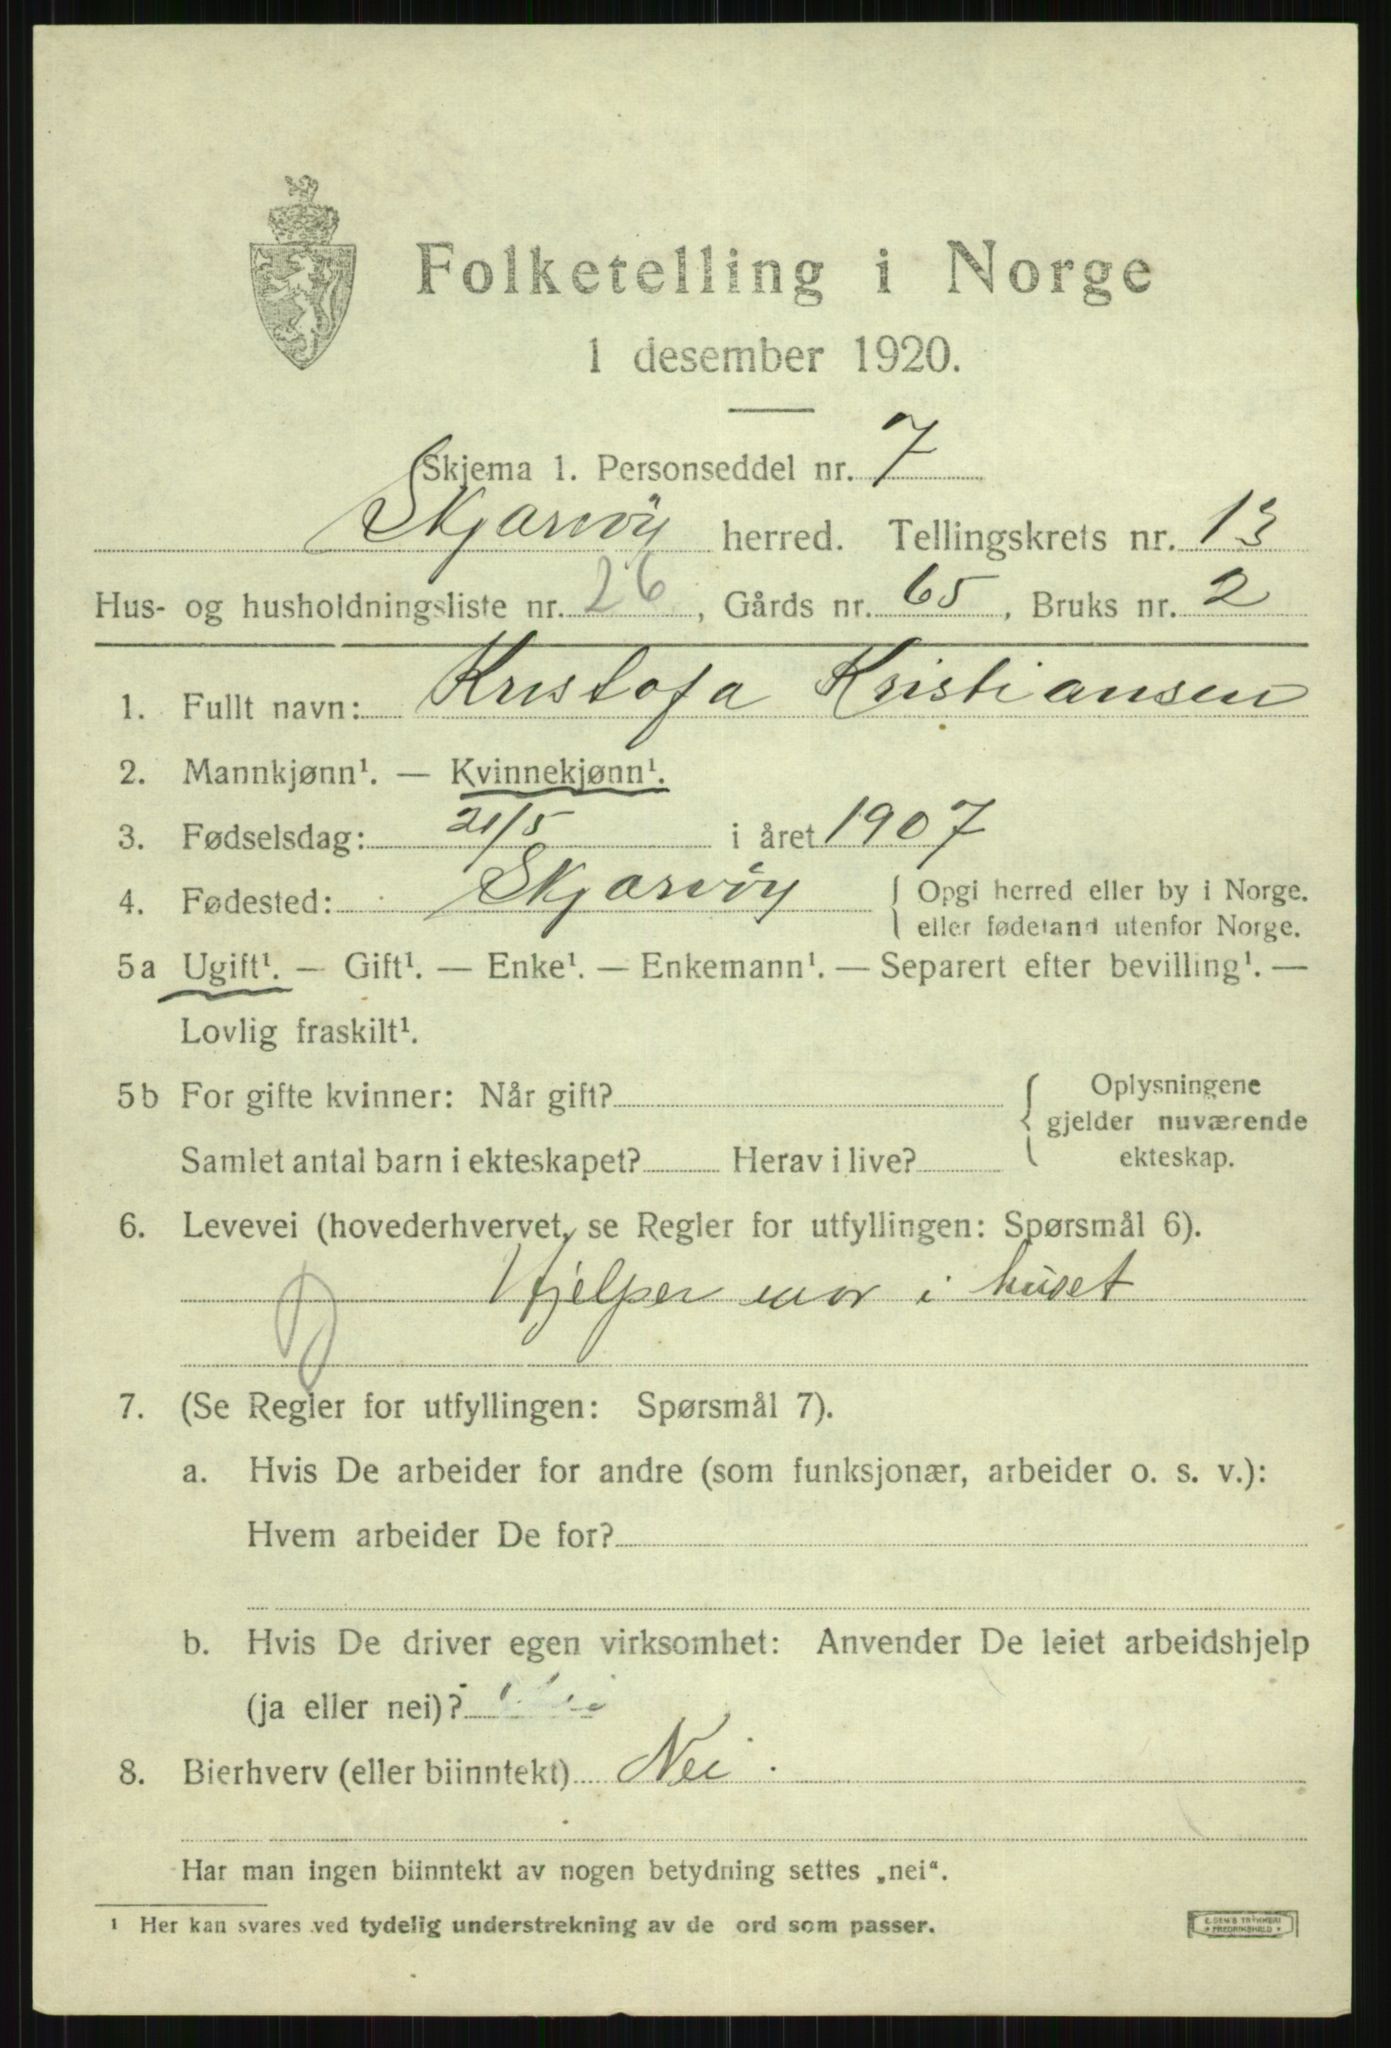 Folketelling i Norge
1 desember 1920.
Skjema 1. Personseddel nr. 7
Skjærvöy herred. Tellingskrets nr. 13
Hus- og husholdningsliste nr. 26, Gårds nr. 65, Bruks nr. 2
1. Fullt navn: Kristofa Kristiansen
2. Mannkjønn¹. — Kvinnekjønn¹.
3. Fødselsdag: 21/5 i året 1907
4. Fødested: Skjærvöy { Opgi herred eller by i Norge.
eller fødeland utenfor Norge.
5a Ugift¹. — Gift¹. — Enke¹. — Enkemann¹. — Separert efter bevilling¹. —
Lovlig fraskilt¹.
5b For gifte kvinner: Når gift? { Oplysningene
gjelder nuværende
Samlet antal barn i ekteskapet? Herav i live? ekteskap.
6. Levevei (hovederhvervet, se Regler for utfyllingen: Spørsmål 6).
Hjelper mor i huset
7. (Se Regler for utfyllingen: Spørsmål 7).
a. Hvis De arbeider for andre (som funksjonær, arbeider o. s. v.):
Hvem arbeider De for?
b. Hvis De driver egen virksomhet: Anvender De leiet arbeidshjelp
(ja eller nei)?
8. Bierhverv (eller biinntekt) Nei.
Har man ingen biinntekt av nogen betydning settes „nei“.
¹ Her kan svares ved tydelig understrekning av de ord som passer.